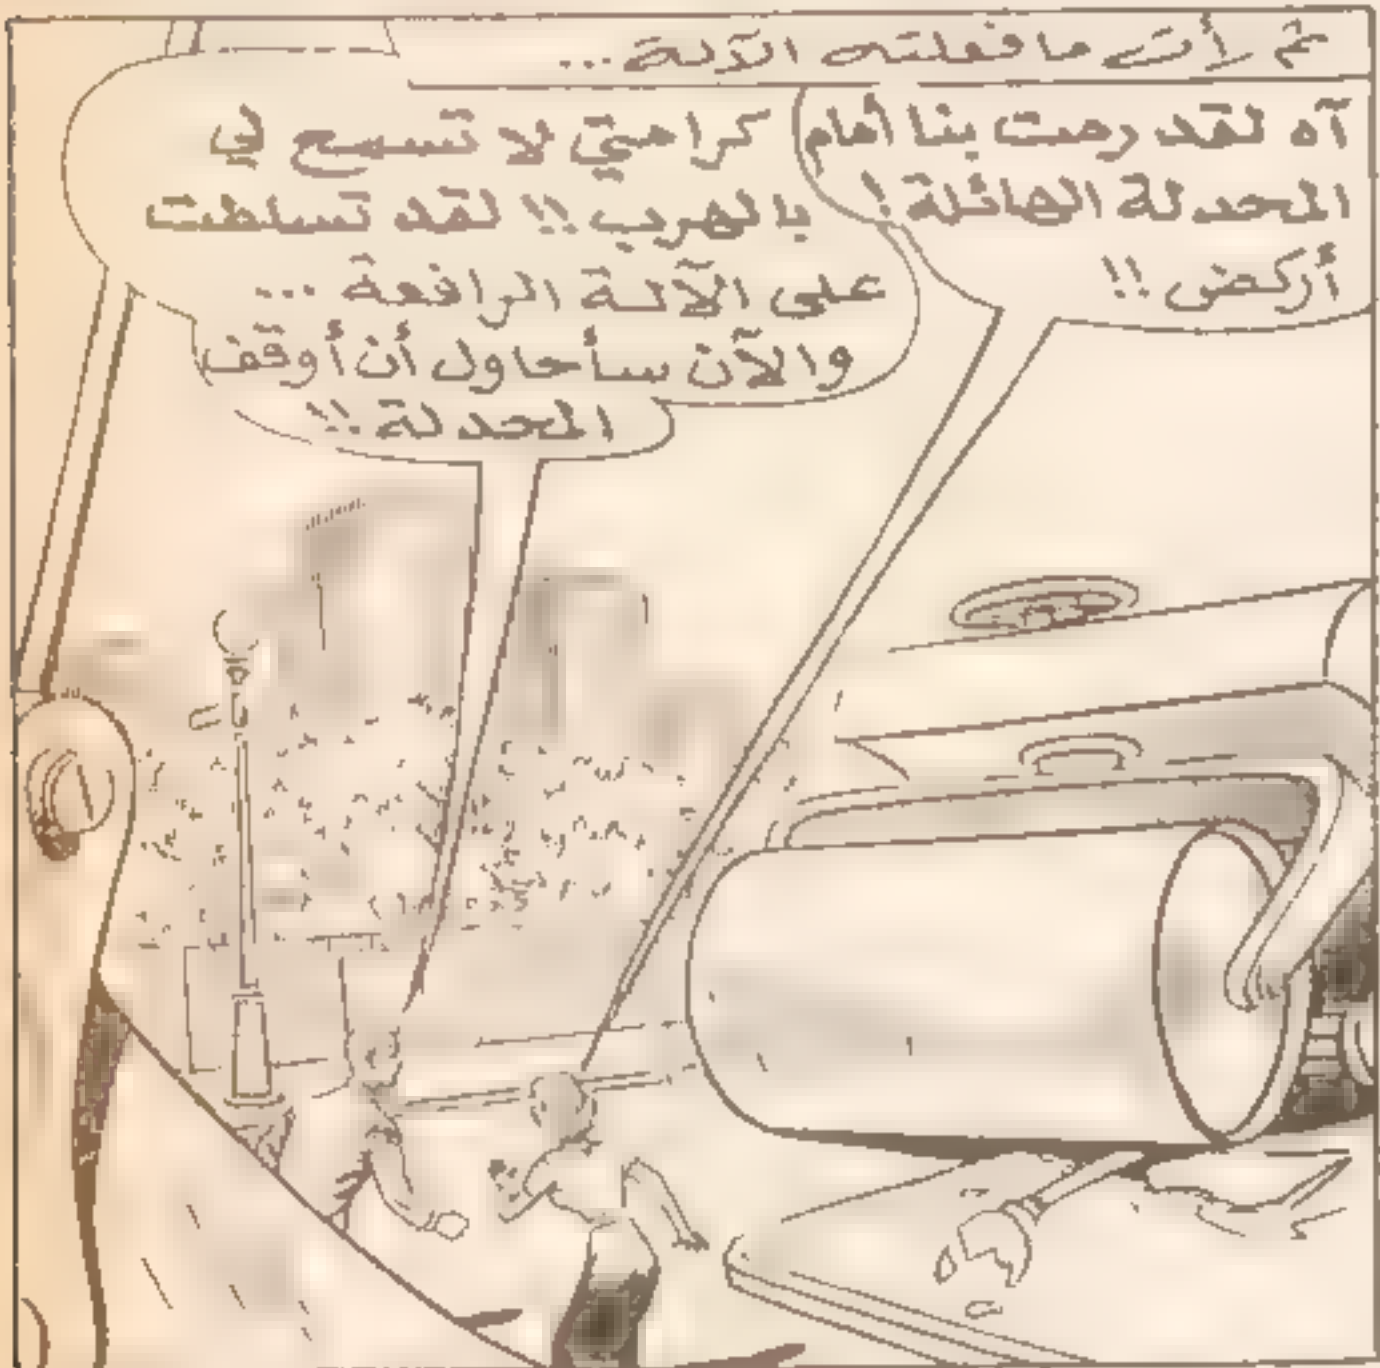 ثم رأت ما فعلته الآلة...
آه لقد رمت بنا أمام
المحدلة الهائلة!
أركض!!
كرامتي لا تسمح لي
بالهرب!! لقد تسلطت
على الآلة الرافعة...
والآن سأحاول أن أوقف
المحدلة!!